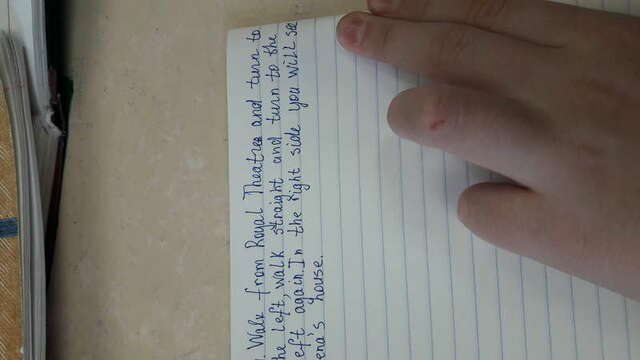 Walk from Royal Theatre and turn to
he left, walk straight and turn to the
eft again. In the right side you will se
ena's house.